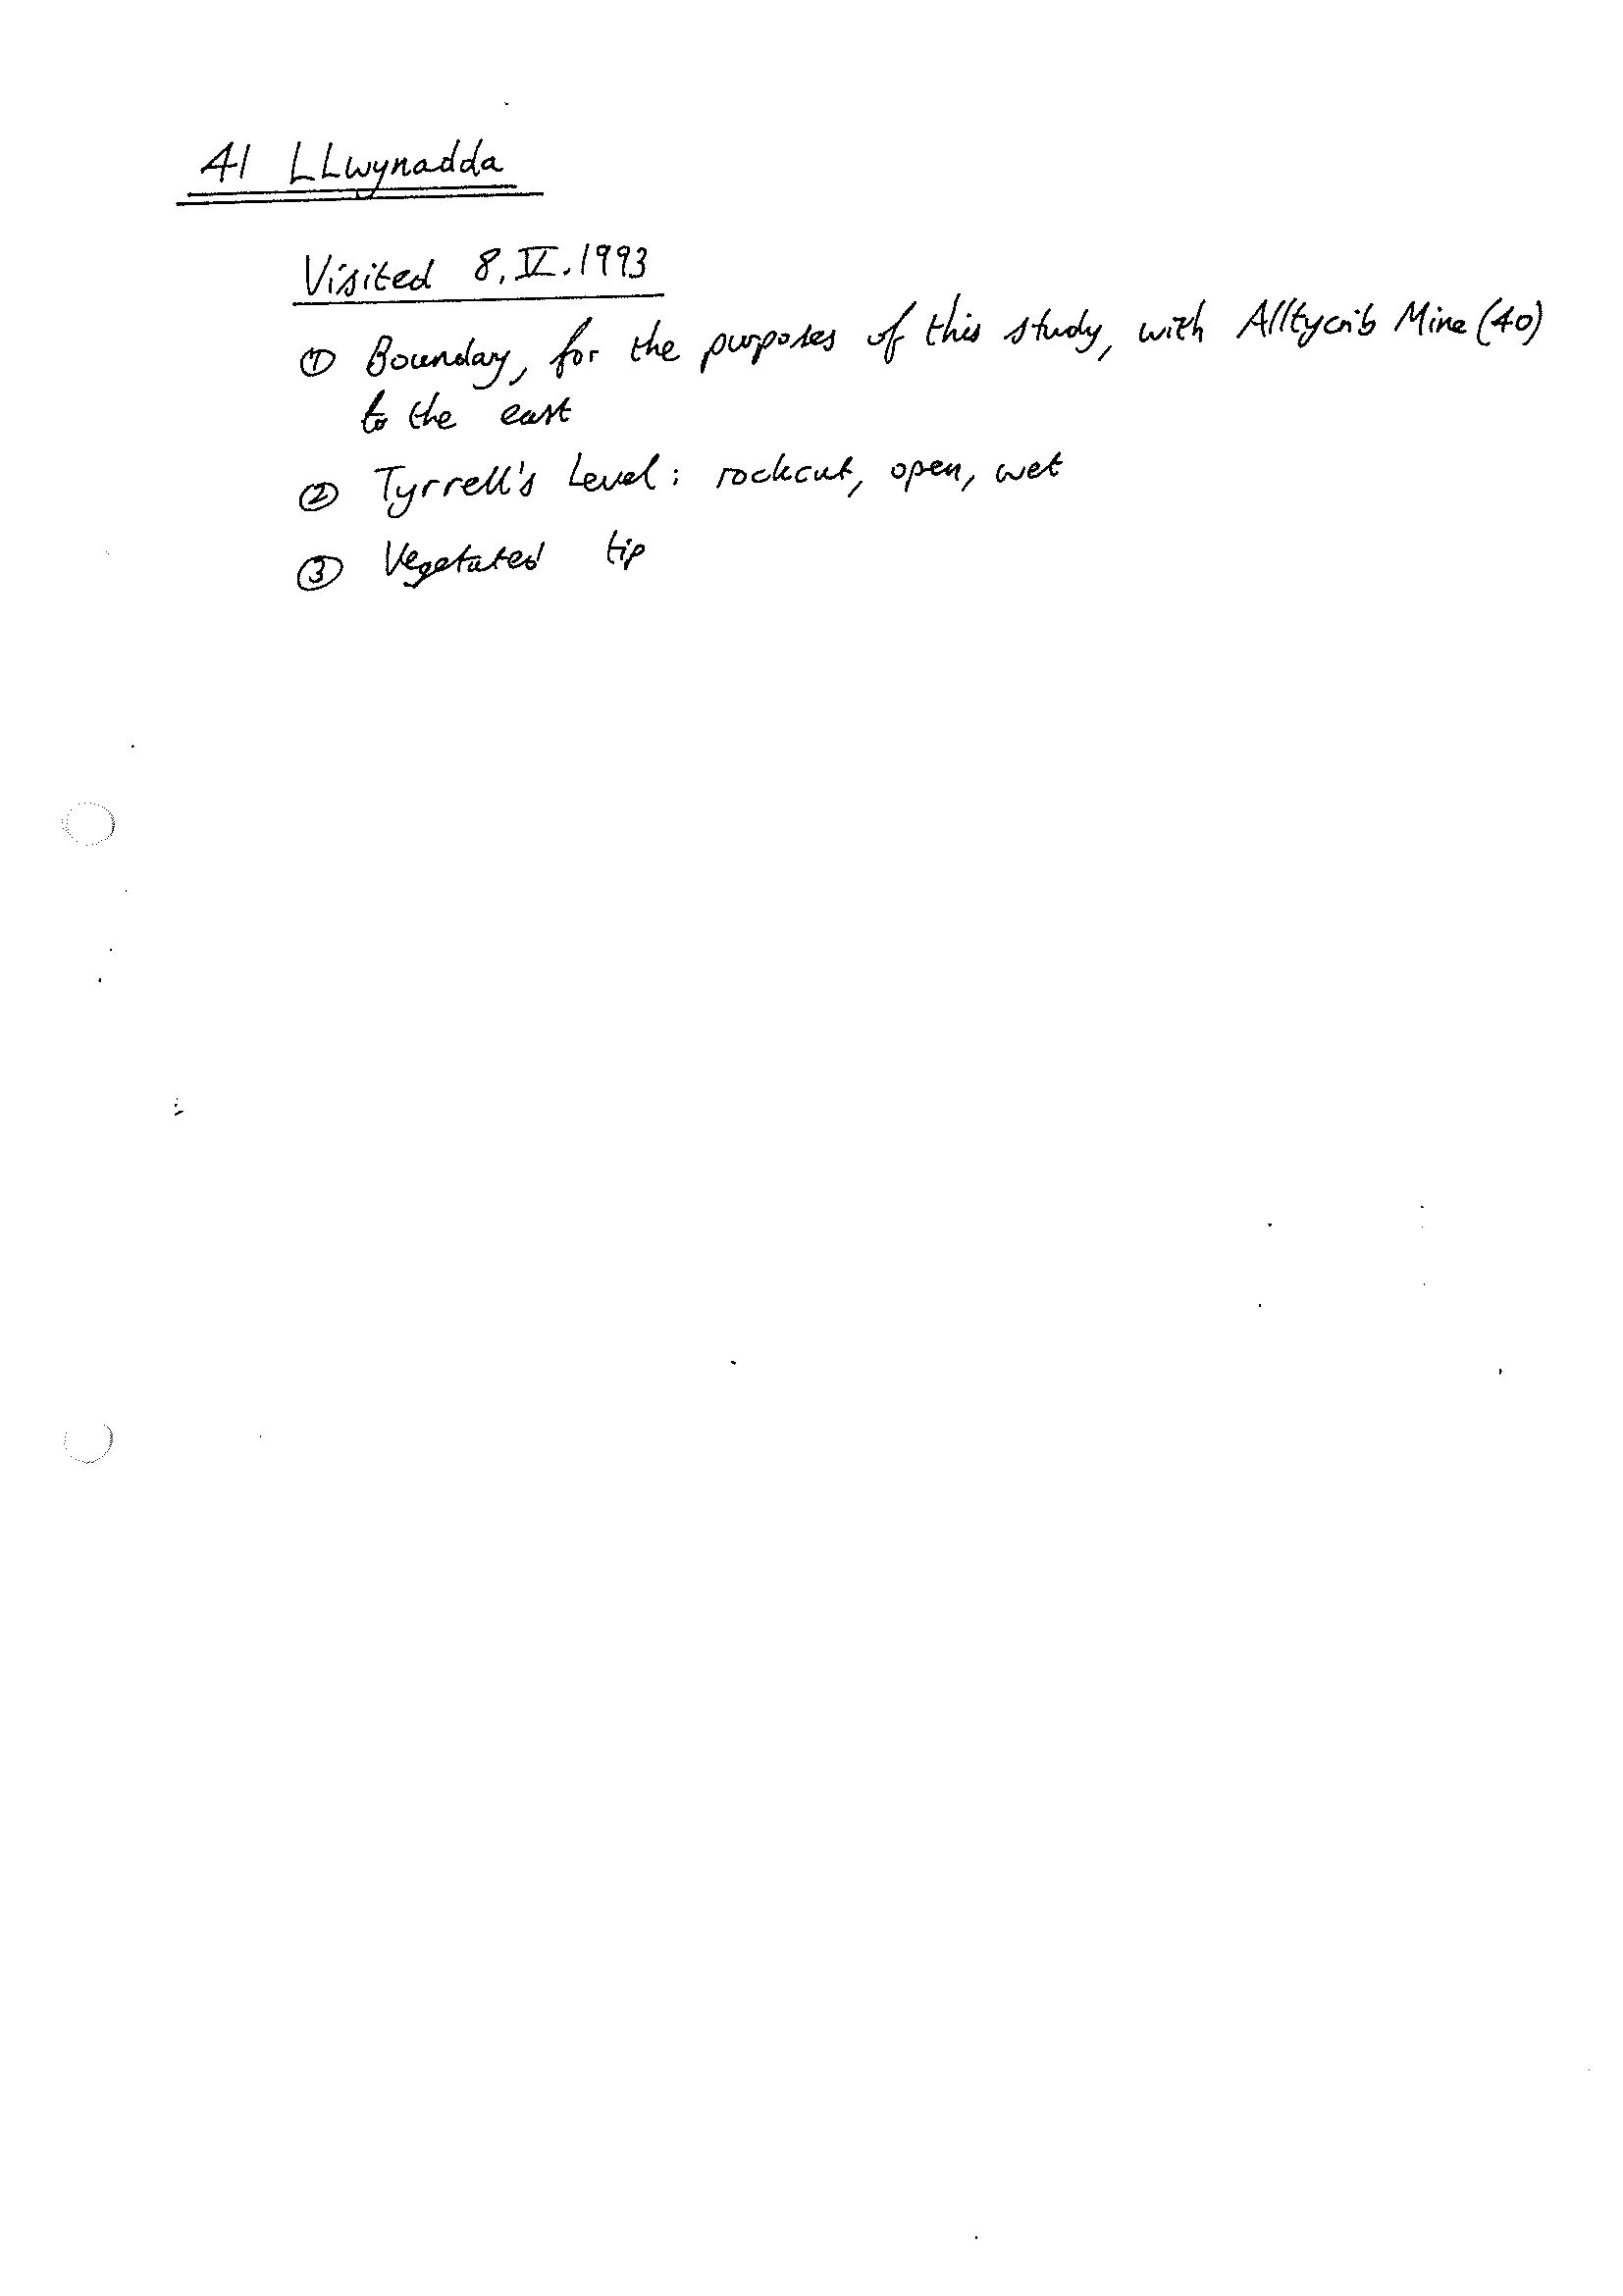 41 LLwynadda
Visited 8.IV.1993
① Boundary, for the purposes of this study, with Alltycrib Mine (40)
to the east
② Tyrrell's Level: rockcut, open, wet
③ Vegetated tip